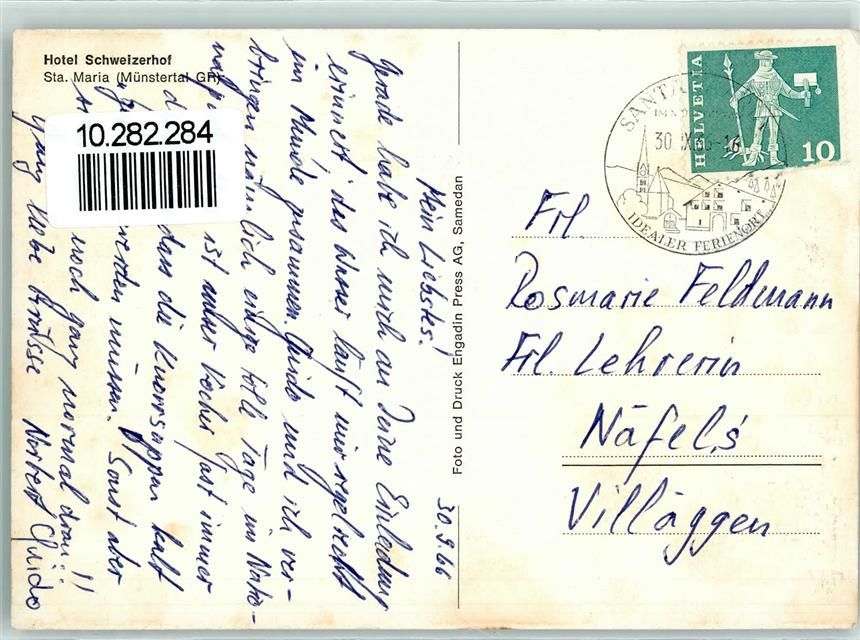 Hotel Schweizerhof
Sta. Maria (Münstertal GR)
10.282.284
30.9.66
Mein Liebstes!
Gerade habe ich mich an Deine Einladung
erinnert; das Wasser läuft mir regelrecht
im Munde zusammen. Guido und ich ver-
bringen nämlich einige tolle Tage im Natio-
nalp
ist unser Kocher fast immer
dass die Knorrsuppen kalt
werden müssen. Sonst aber
noch ganz normal dran!!
ganz liebe Grüsse Norbert Guido
Foto und Druck Engadin Press AG, Samedan
SANTA
30. IX. 66-16
IDEALER FERIENORT
HELVETIA
10
Frl.
Rosmarie Feldmann
Frl. Lehrerin
Näfels
Villäggen